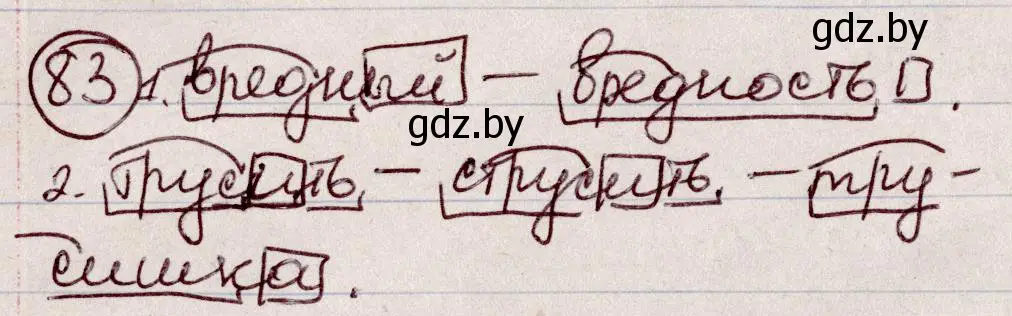 gdz.by
83 1. вредный – вредность.
gdz.by
2. трусить – струсить – тру-
сишка.